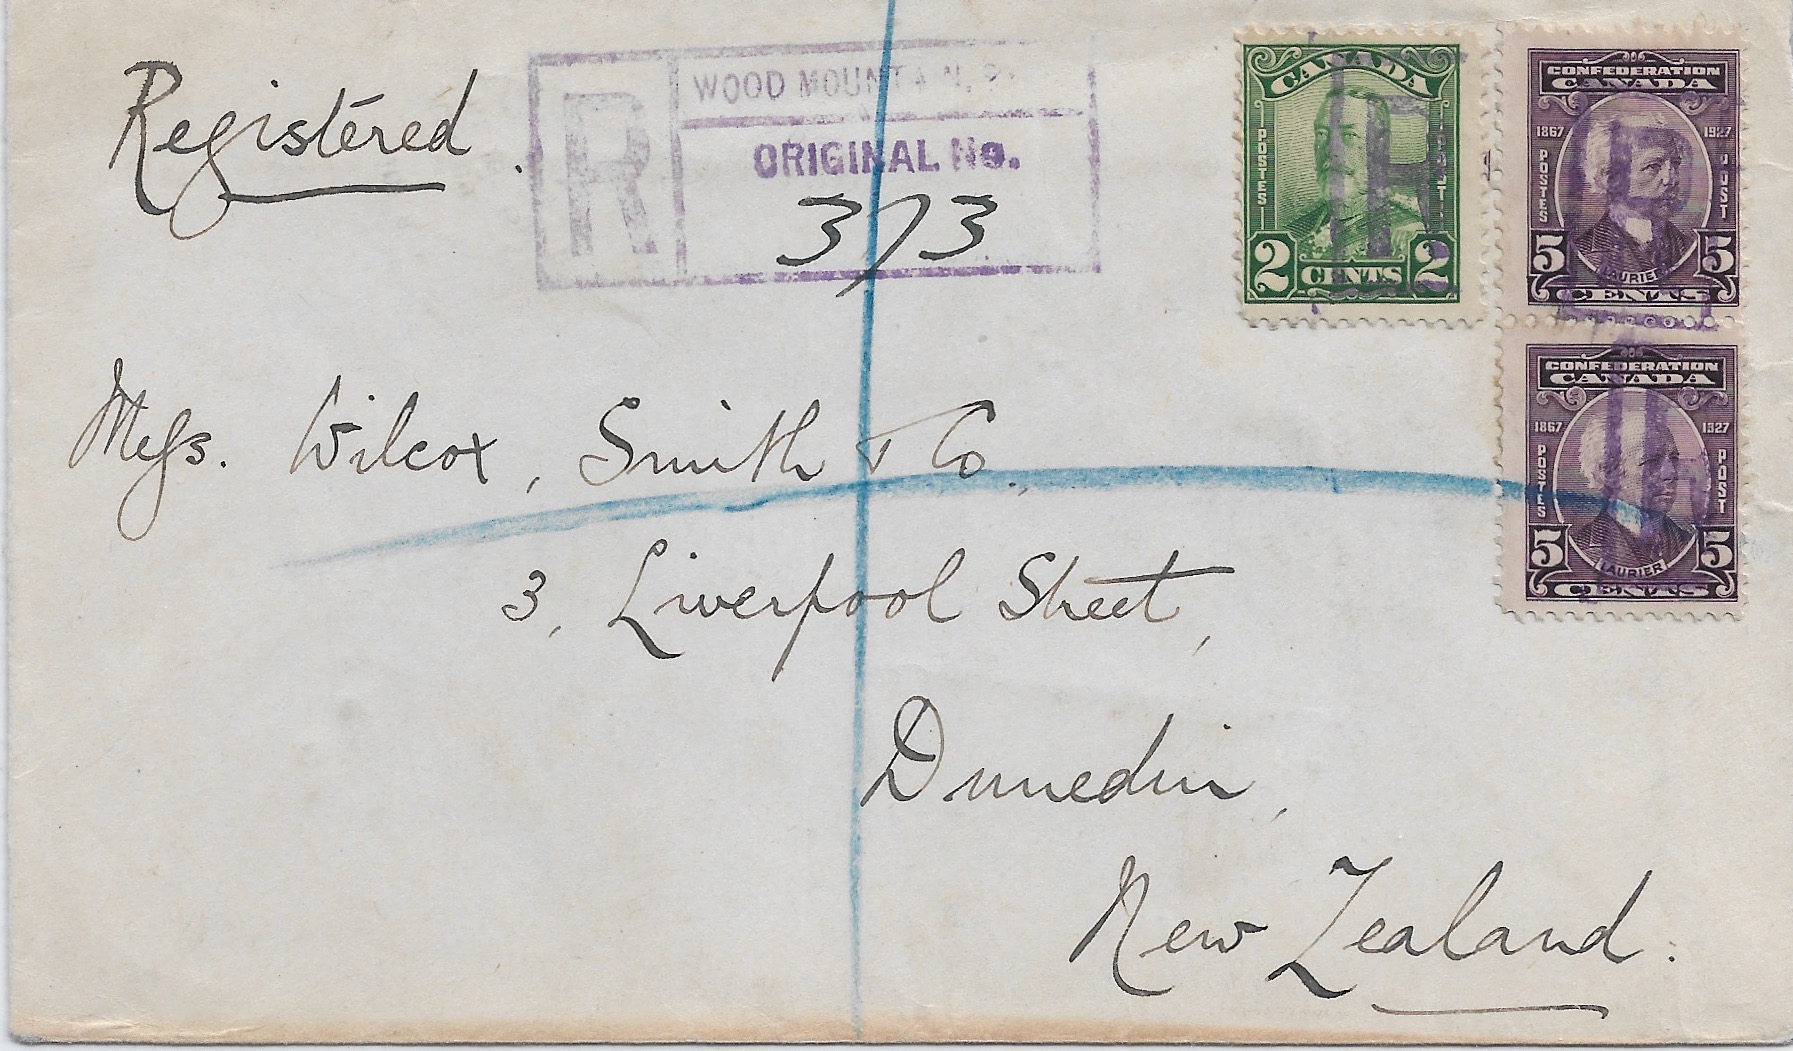 Registered.
R
WOOD MOUNTAIN,
ORIGINAL No.
373
CANADA
POSTES
2 CENTS 2
R
CONFEDERATION
CANADA
1867 1927
POSTES POST
LAURIER
5 5
CENTS
CONFEDERATION
CANADA
1867 1927
POSTES POST
LAURIER
5 5
CENTS
Messs. Wilcox, Smith & Co.,
3, Liverpool Street,
Dunedin,
New Zealand.